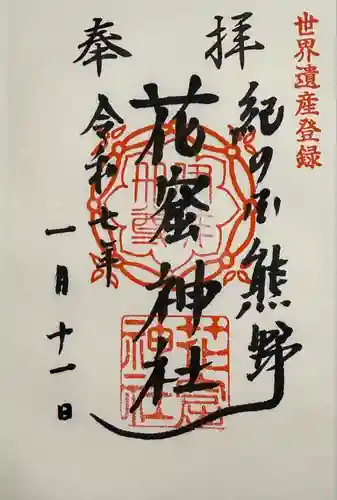 世界遺産登録
奉拝
紀の国熊野
花蜜神社
令和七年
一月十一日
花窟
神社